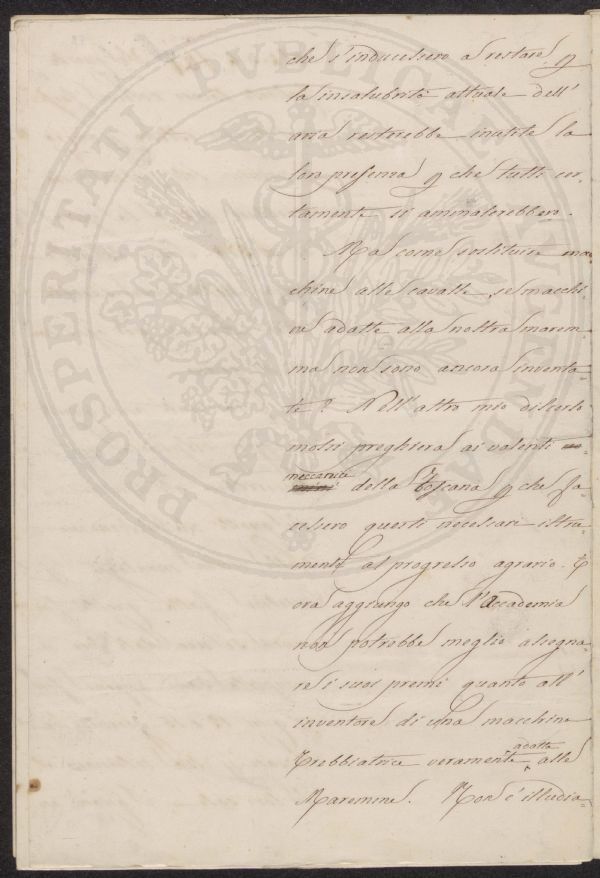 che s'inducessero a restare, p
la insalubrità attuale dell'
aria resterebbe inutile la
loro presenza p che tutti cer-
tamente si ammalerebbero.
Ma come sostituire mac
chine alle cavalle, se macchi-
ne adatte alla nostra marem-
ma non sono ancora inventa-
te? Nell'altro mio discorso
mossi preghiera ai valenti
meccanici della Toscana p che fa-
cessero questi necessari istru-
menti al progresso agrario. E
ora aggiungo che l'Accademia
non potrebbe meglio assegna-
re i suoi premi quanto all'
inventore di una macchina
Trebbiatrice veramente adatta alle
Maremme. Non c'illudia-
PROSPERITATI PUBLICAE AUGENDAE